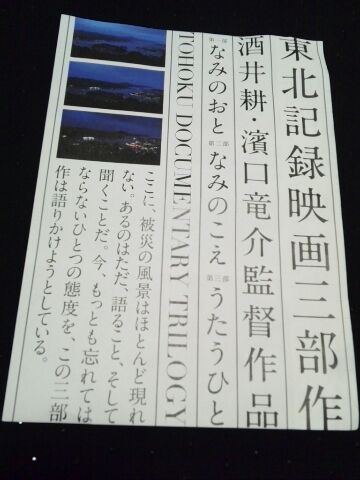 東北記録映画三部作
酒井耕・濱口竜介監督作品
第一部 なみのおと 第二部 なみのこえ 第三部 うたうひと
TOHOKU DOCUMENTARY TRILOGY
ここに、被災の風景はほとんど現れ
ない。あるのはただ、語ること、そして
聞くことだ。今、もっとも忘れては
ならないひとつの態度を、この三部
作は語りかけようとしている。